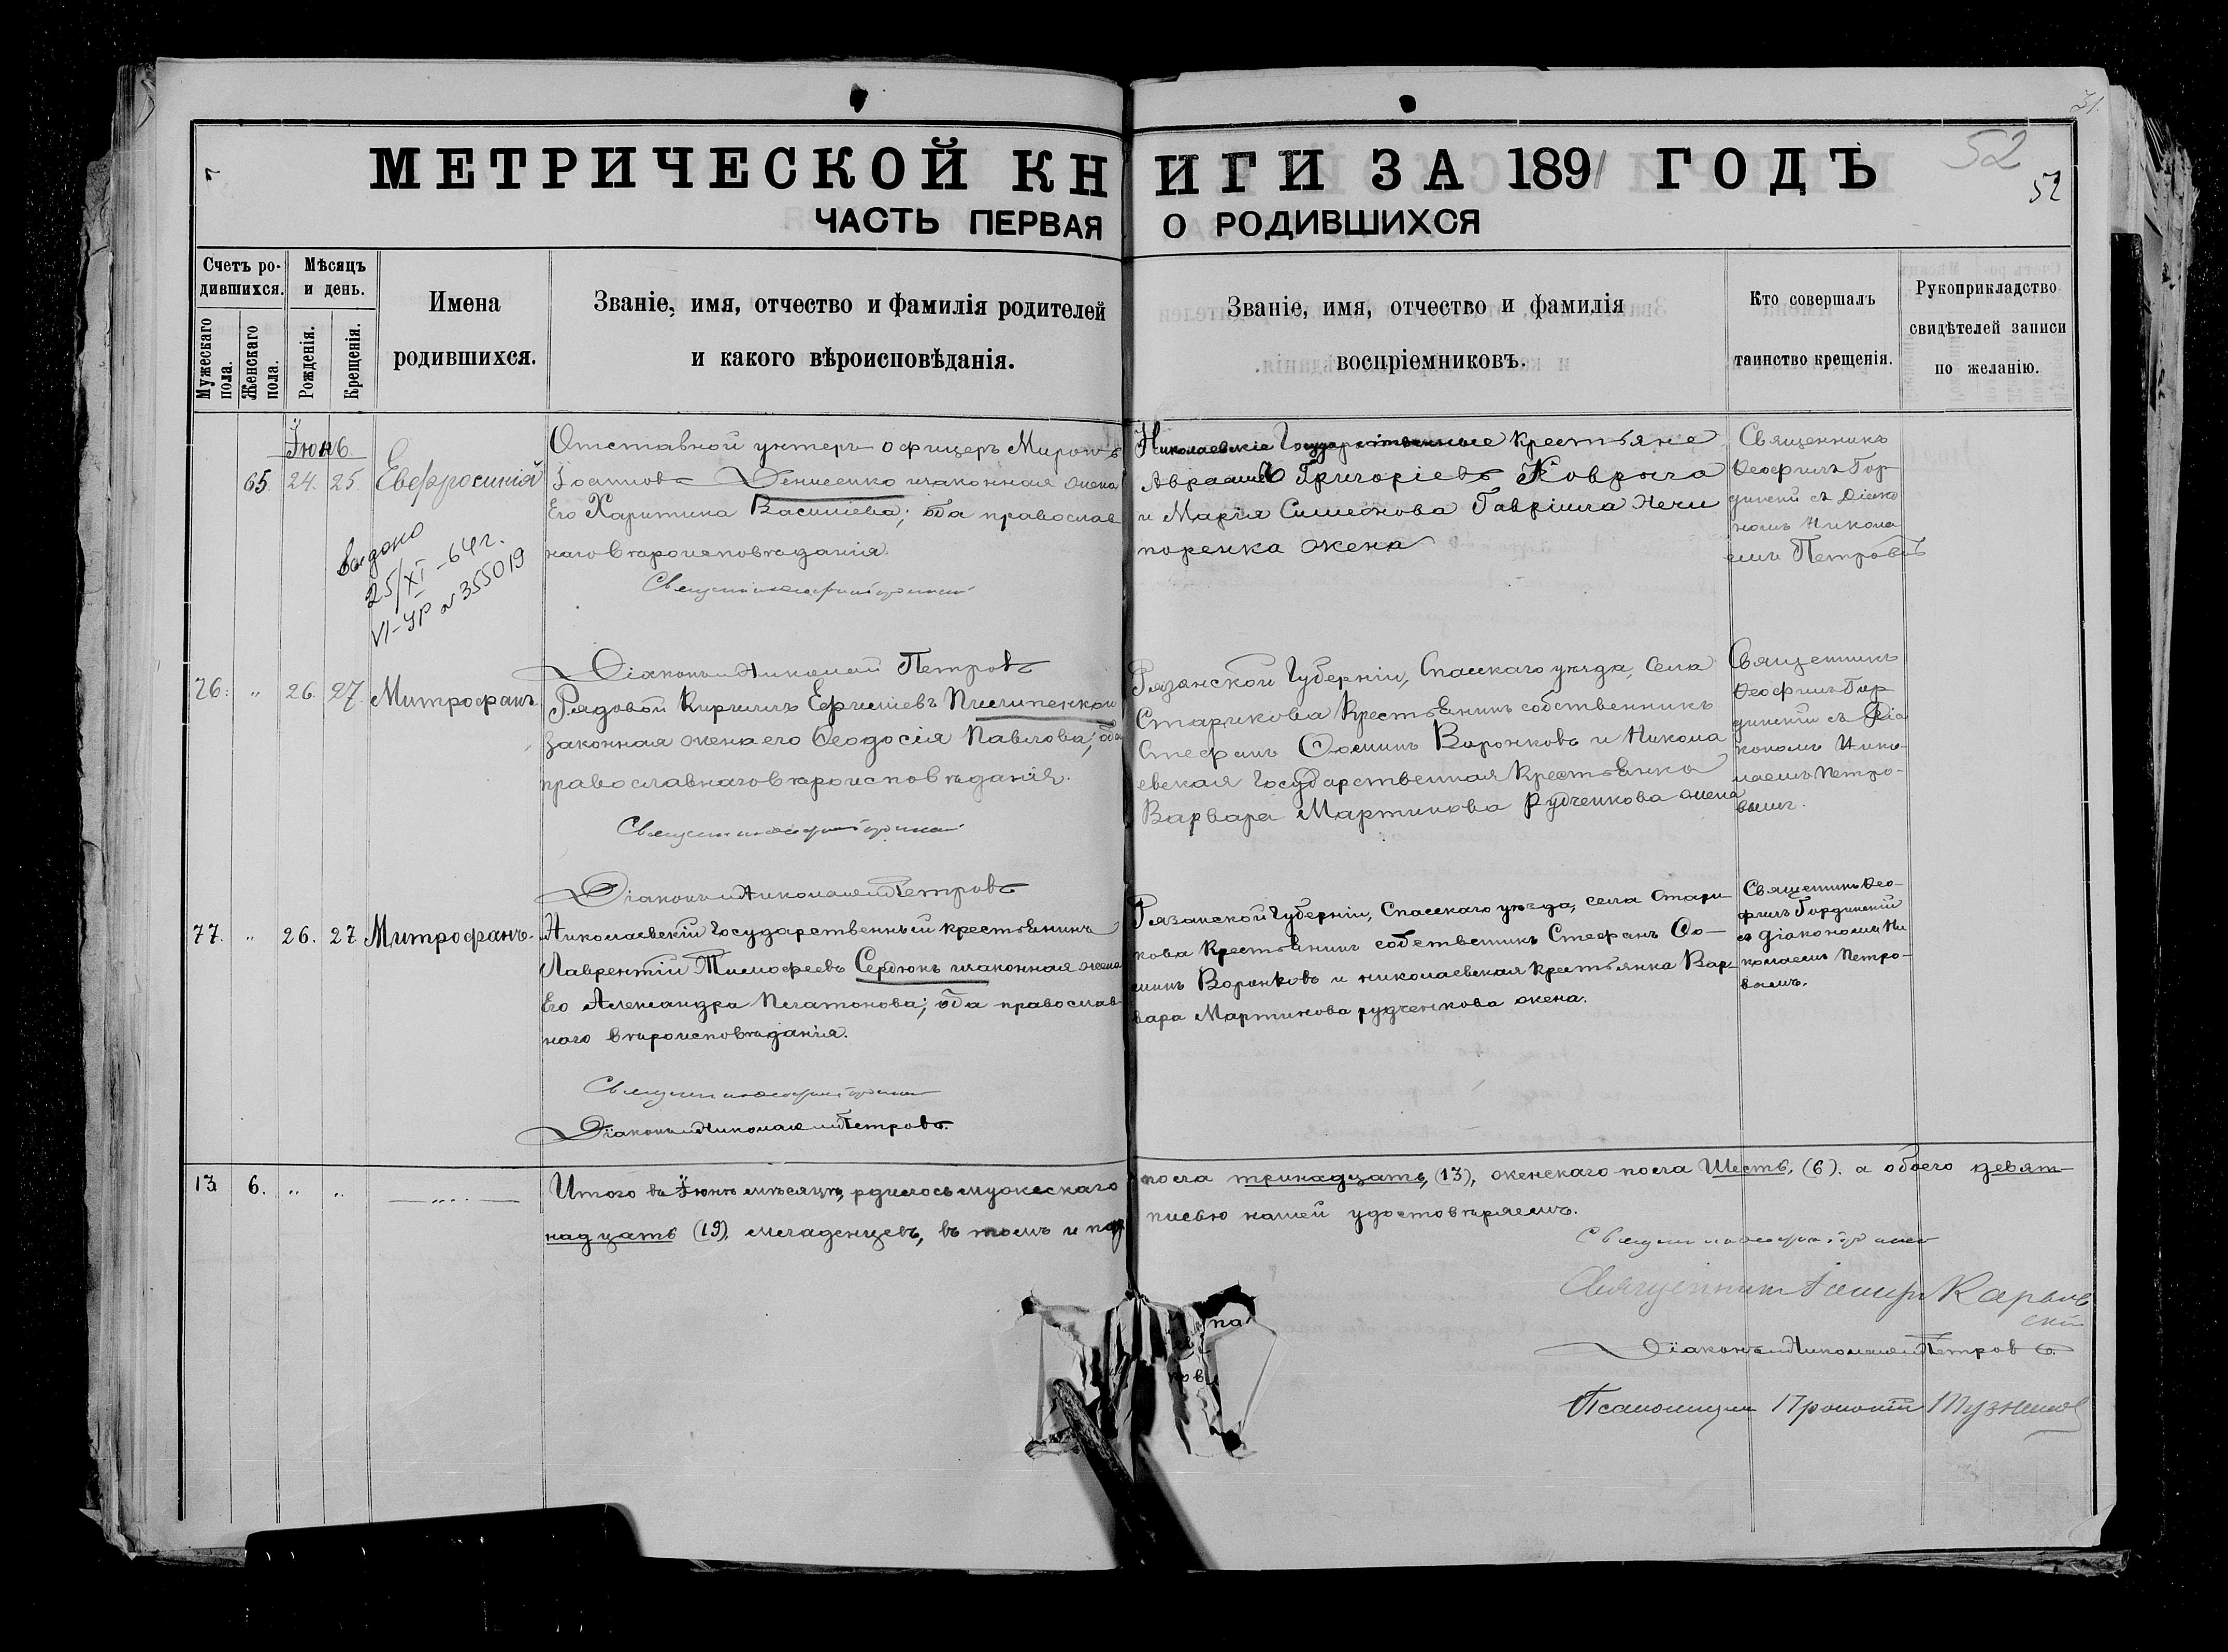 31.
52
52
7
МЕТРИЧЕСКОЙ КНИГИ ЗА 1891 ГОДЪ
ЧАСТЬ ПЕРВАЯ О РОДИВШИХСЯ
Счетъ ро-
дившихся.
Мужескаго пола.
Женскаго пола.
Мѣсяцъ
и день.
Рожденія.
Крещенія.
Имена
родившихся.
Званіе, имя, отчество и фамилія родителей
и какого вѣроисповѣданія.
Званіе, имя, отчество и фамилія
воспріемниковъ.
Кто совершалъ
таинство крещенія.
Рукоприкладство
свидѣтелей записи
по желанію.
Іюнь.
65. 24. 25. Евфросинія
Отставной унтеръ-офицеръ Миронъ
Іоанновъ Денисенко и законная жена
Его Харитина Васильева; оба православ
наго вѣроисповѣданія.
Николаевскіе Государственные крестьяне
Авраамъ Григоріевъ Коврыга
и Марія Симеонова Гавріила Нечи
поренка жена
Священникъ
Ѳеофилъ Гор
динскій съ Діако
номъ Никола
емъ Петровымъ
выдано
25/XI-64г.
VI-УР № 355019
Діаконъ Николай Петровъ
76. " 26. 27. Митрофанъ
Рядовой Кириллъ Ефимiевъ Пилипенко и
законная жена его Ѳеодосія Павлова; оба
православнаго вѣроисповѣданія.
Рязанской Губерніи, Спасскаго уѣзда, Села
Старикова Крестьянинъ собственникъ
Стефанъ Ѳоминъ Воронковъ и Никола
евская Государственная Крестьянка
Варвара Мартинова Рудченкова жена
Священникъ
Ѳеофилъ Гор
динскій съ Діа
кономъ Нико-
лаемъ Петро-
вымъ.
Діаконъ Николай Петровъ
77. " 26. 27. Митрофанъ.
Николаевскій Государственный крестьянинъ
Лаврентій Тимофеевъ Сердюкъ и законная жена
Его Александра Платонова; оба православ-
наго вѣроисповѣданія.
Рязанской Губерніи, Спасскаго уѣзда, села Стари-
кова Крестьянинъ собственникъ Стефанъ Ѳо-
минъ Воронковъ и николаевская крестьянка Вар-
вара Мартинова рудченкова жена.
Священникъ Ѳео-
филъ Гординскій
съ діакономъ Ни
колаемъ Петро-
вымъ.
Діаконъ Николай Петровъ.
13. 6. " "
Итого въ Іюнѣ мѣсяцѣ, рдилось мужескаго пола тринадцать, (13), женскаго пола Шесть, (6). а обоего девят-
надцать (19). младенцевъ, въ томъ и подписью нашей удостовѣряемъ.
Священникъ
Діаконъ Николай Петровъ.
Псаломщикъ